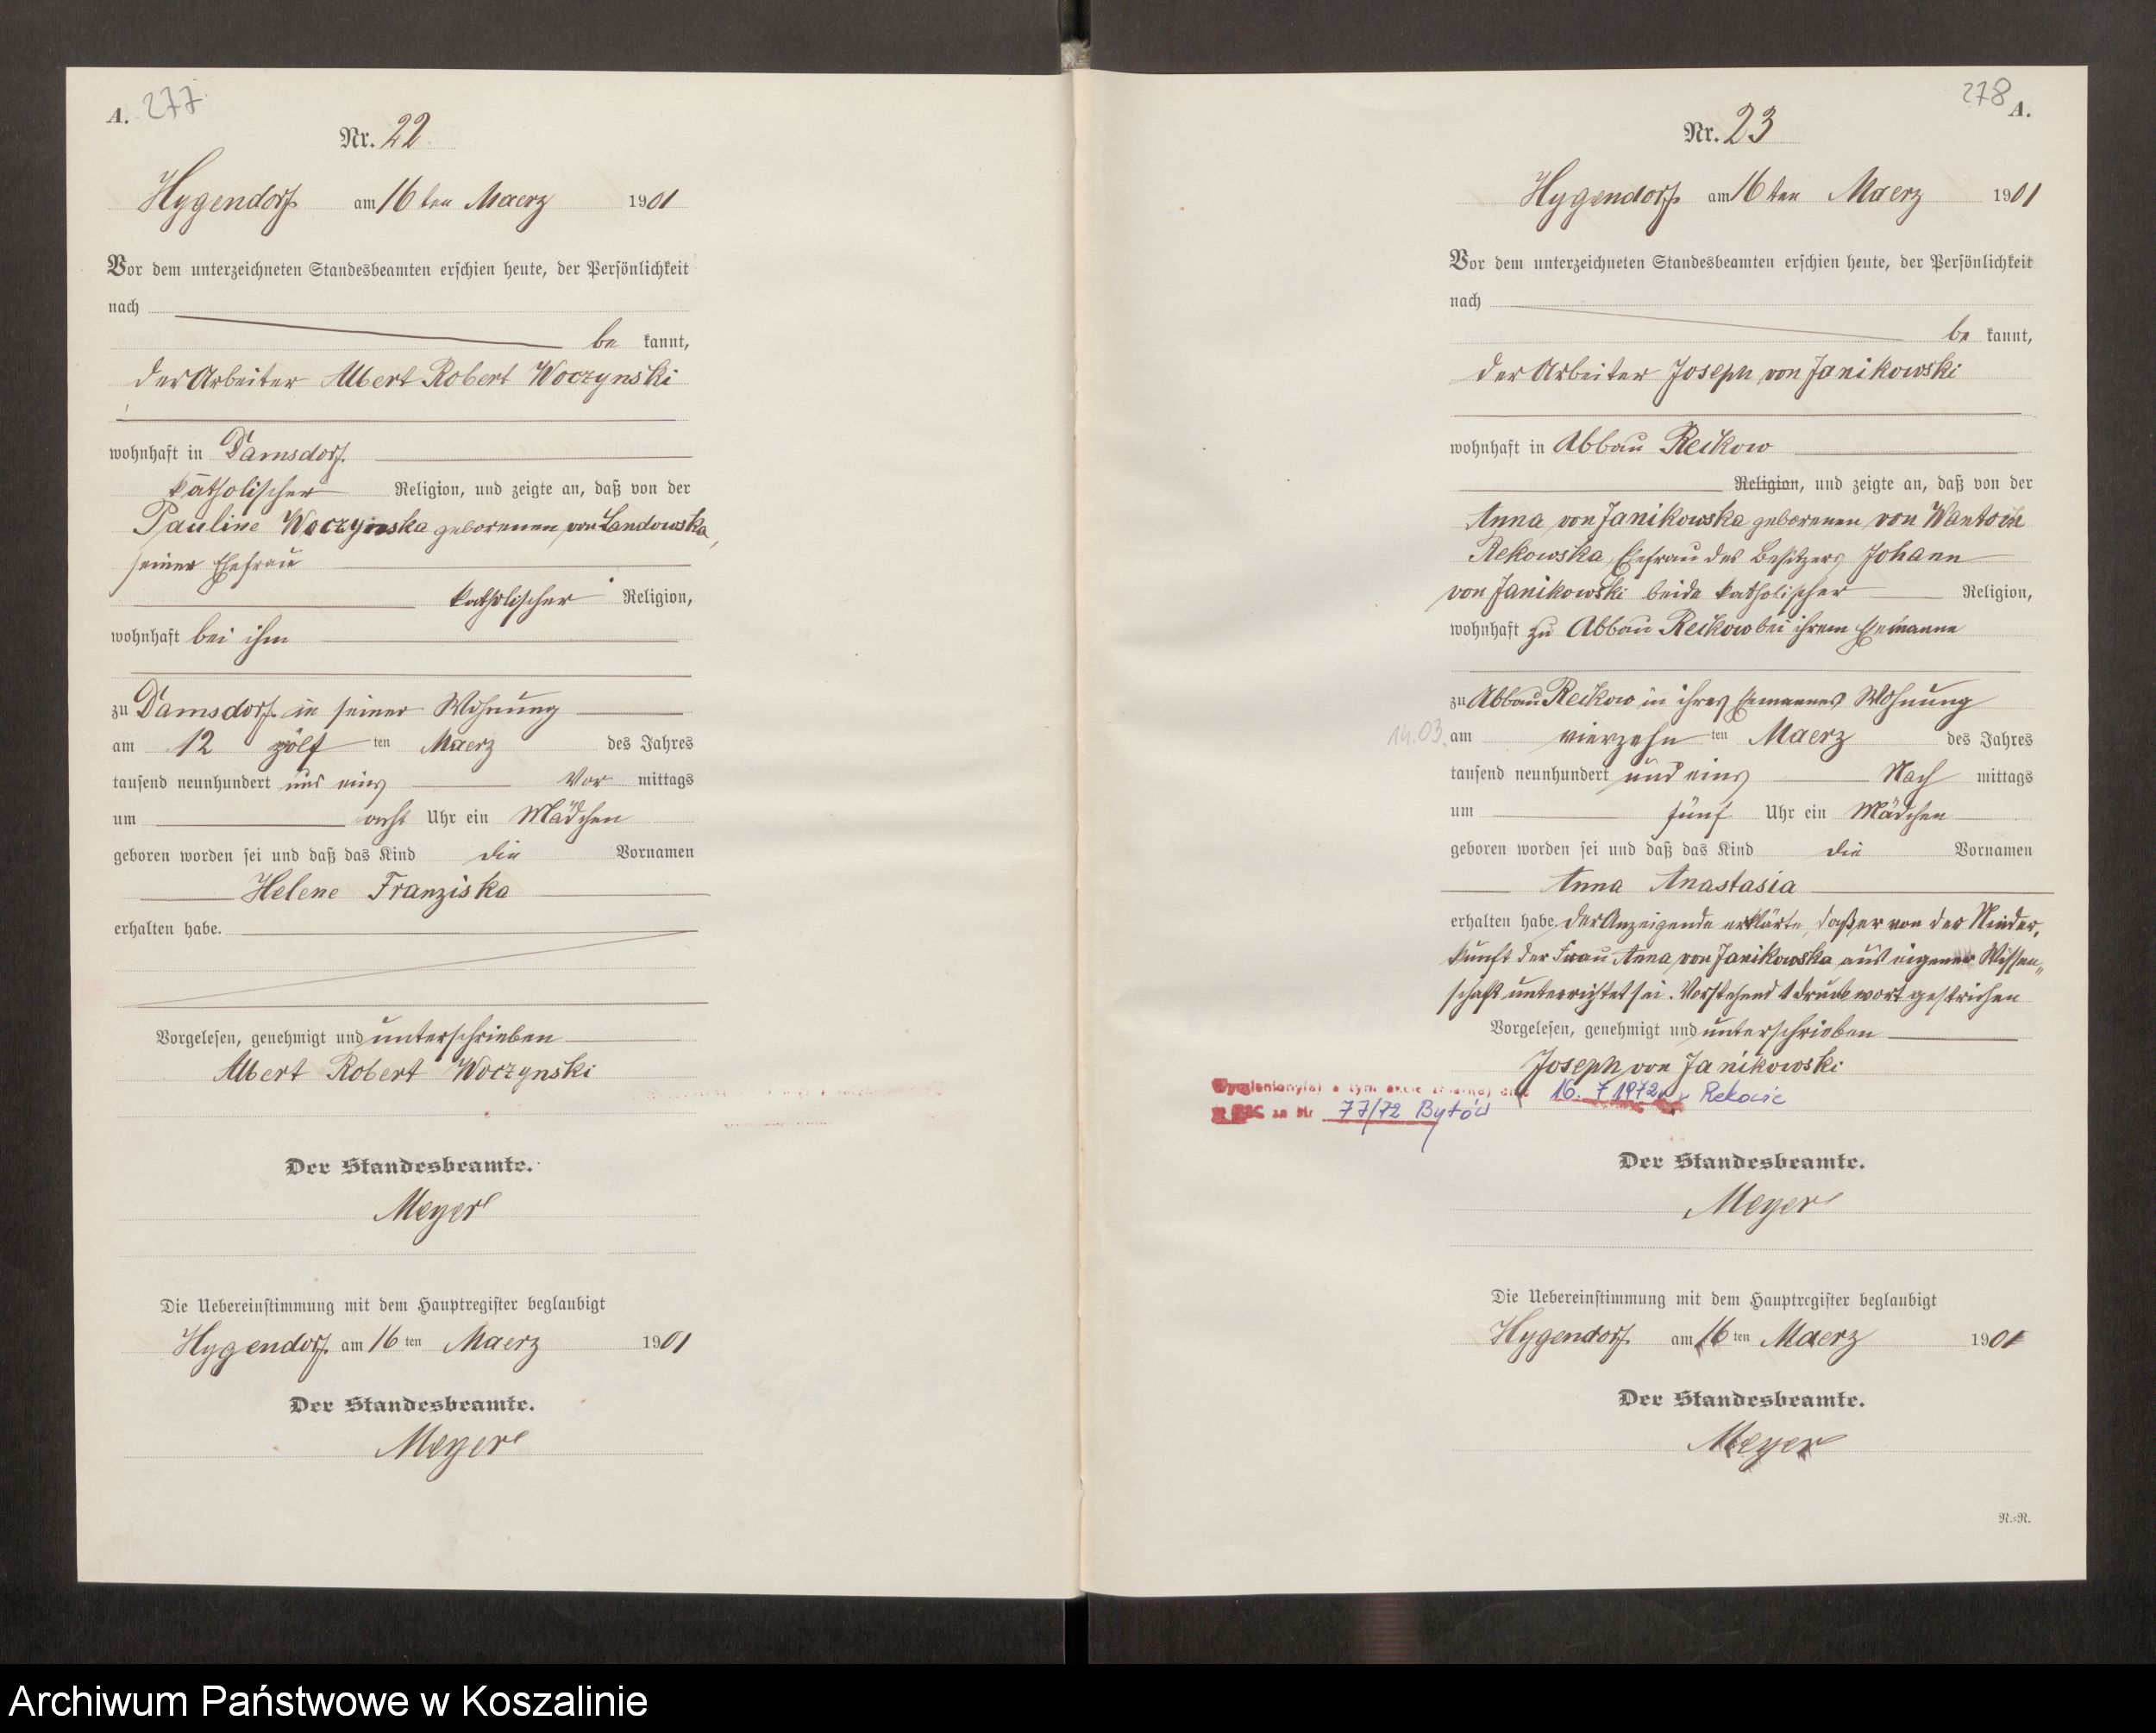 A. 277.
Nr. 22
Hygendorf am 16 ten Maerz 1901
Vor dem unterzeichneten Standesbeamten erschien heute, der Persönlichkeit
nach
be kannt,
der Arbeiter Albert Robert Woczynski
wohnhaft in Damsdorf.
katholischer Religion, und zeigte an, daß von der
Pauline Woczynska geborenen von Landowska,
seiner Ehefrau
katholischer Religion,
wohnhaft bei ihm
zu Damsdorf in seiner Wohnung
am 12 zölf ten Maerz des Jahres
tausend neunhundert und eins Vor mittags
um acht Uhr ein Mädchen
geboren worden sei und daß das Kind die Vornamen
Helene Franziska
erhalten habe.
Vorgelesen, genehmigt und unterschrieben
Albert Robert Woczynski
Der Standesbeamte.
Meyer
Die Uebereinstimmung mit dem Hauptregister beglaubigt
Hygendorf. am 16 ten Maerz 1901
Der Standesbeamte.
Meyer
278 A.
Nr. 23
Hygendorf am 16 ten Maerz 1901
Vor dem unterzeichneten Standesbeamten erschien heute, der Persönlichkeit
nach
be kannt,
der Arbeiter Joseph von Janikowski
wohnhaft in Abbau Reckow
Religion, und zeigte an, daß von der
Anna von Janikowska geborenen von Wantoch
Rekowska, Ehefrau des Besitzers Johann
von Janikowski beide katholischer Religion,
wohnhaft zu Abbau Reckow bei ihrem Ehemanne
zu Abbau Reckow in ihres Ehemannes Wohnung
14.03. am vierzehn ten Maerz des Jahres
tausend neunhundert und eins Nach mittags
um fünf Uhr ein Mädchen
geboren worden sei und daß das Kind die Vornamen
Anna Anastasia
erhalten habe, der Anzeigende erklärte, daß er von der Nieder,
kunft der Frau Anna von Janikowska aus eigener Wissen„
schaft unterrichtet sei. Vorstehend 1 Druckwort gestrichen
Vorgelesen, genehmigt und unterschrieben
Joseph von Janikowski
16. 7 1972 Rekowie
77/72 Bytów
Der Standesbeamte.
Meyer
Die Uebereinstimmung mit dem Hauptregister beglaubigt
Hygendorf. am 16 ten Maerz 1901
Der Standesbeamte.
Meyer
N.=R.
Archiwum Państwowe w Koszalinie